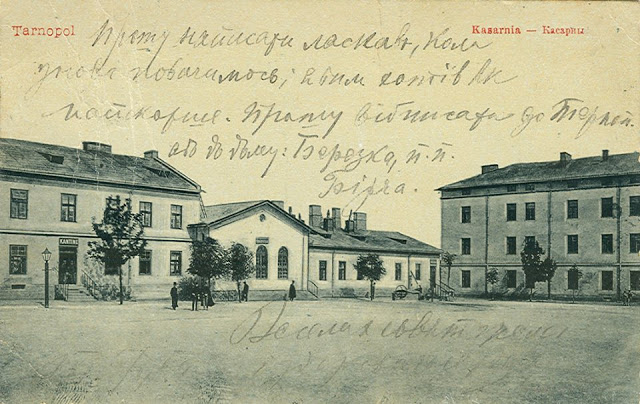 Tarnopol
Kasarnia — Касарнѣ
Прошу написати ласкаво, коли
знова побачимось; я бим хотів як
найскорше. Прошу відписати до Терноп.
або до дому: Березка, п.п.
Бірча.
KANTINE
Веселих свят